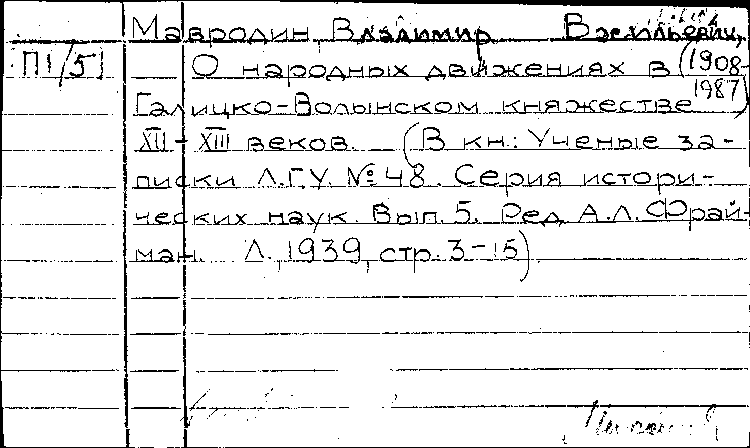 Мавродин, Владимир Васильевич,
П1/5
О народных движениях в (1908-
1987)
Галицко-Волынском княжестве
XII-XIII веков. (В кн.: Ученые за-
писки Л.Г.У. № 48. Серия истори-
ческих наук. Вып. 5. Ред. А.Л. Фрай-
ман. Л., 1939, стр. 3-15)